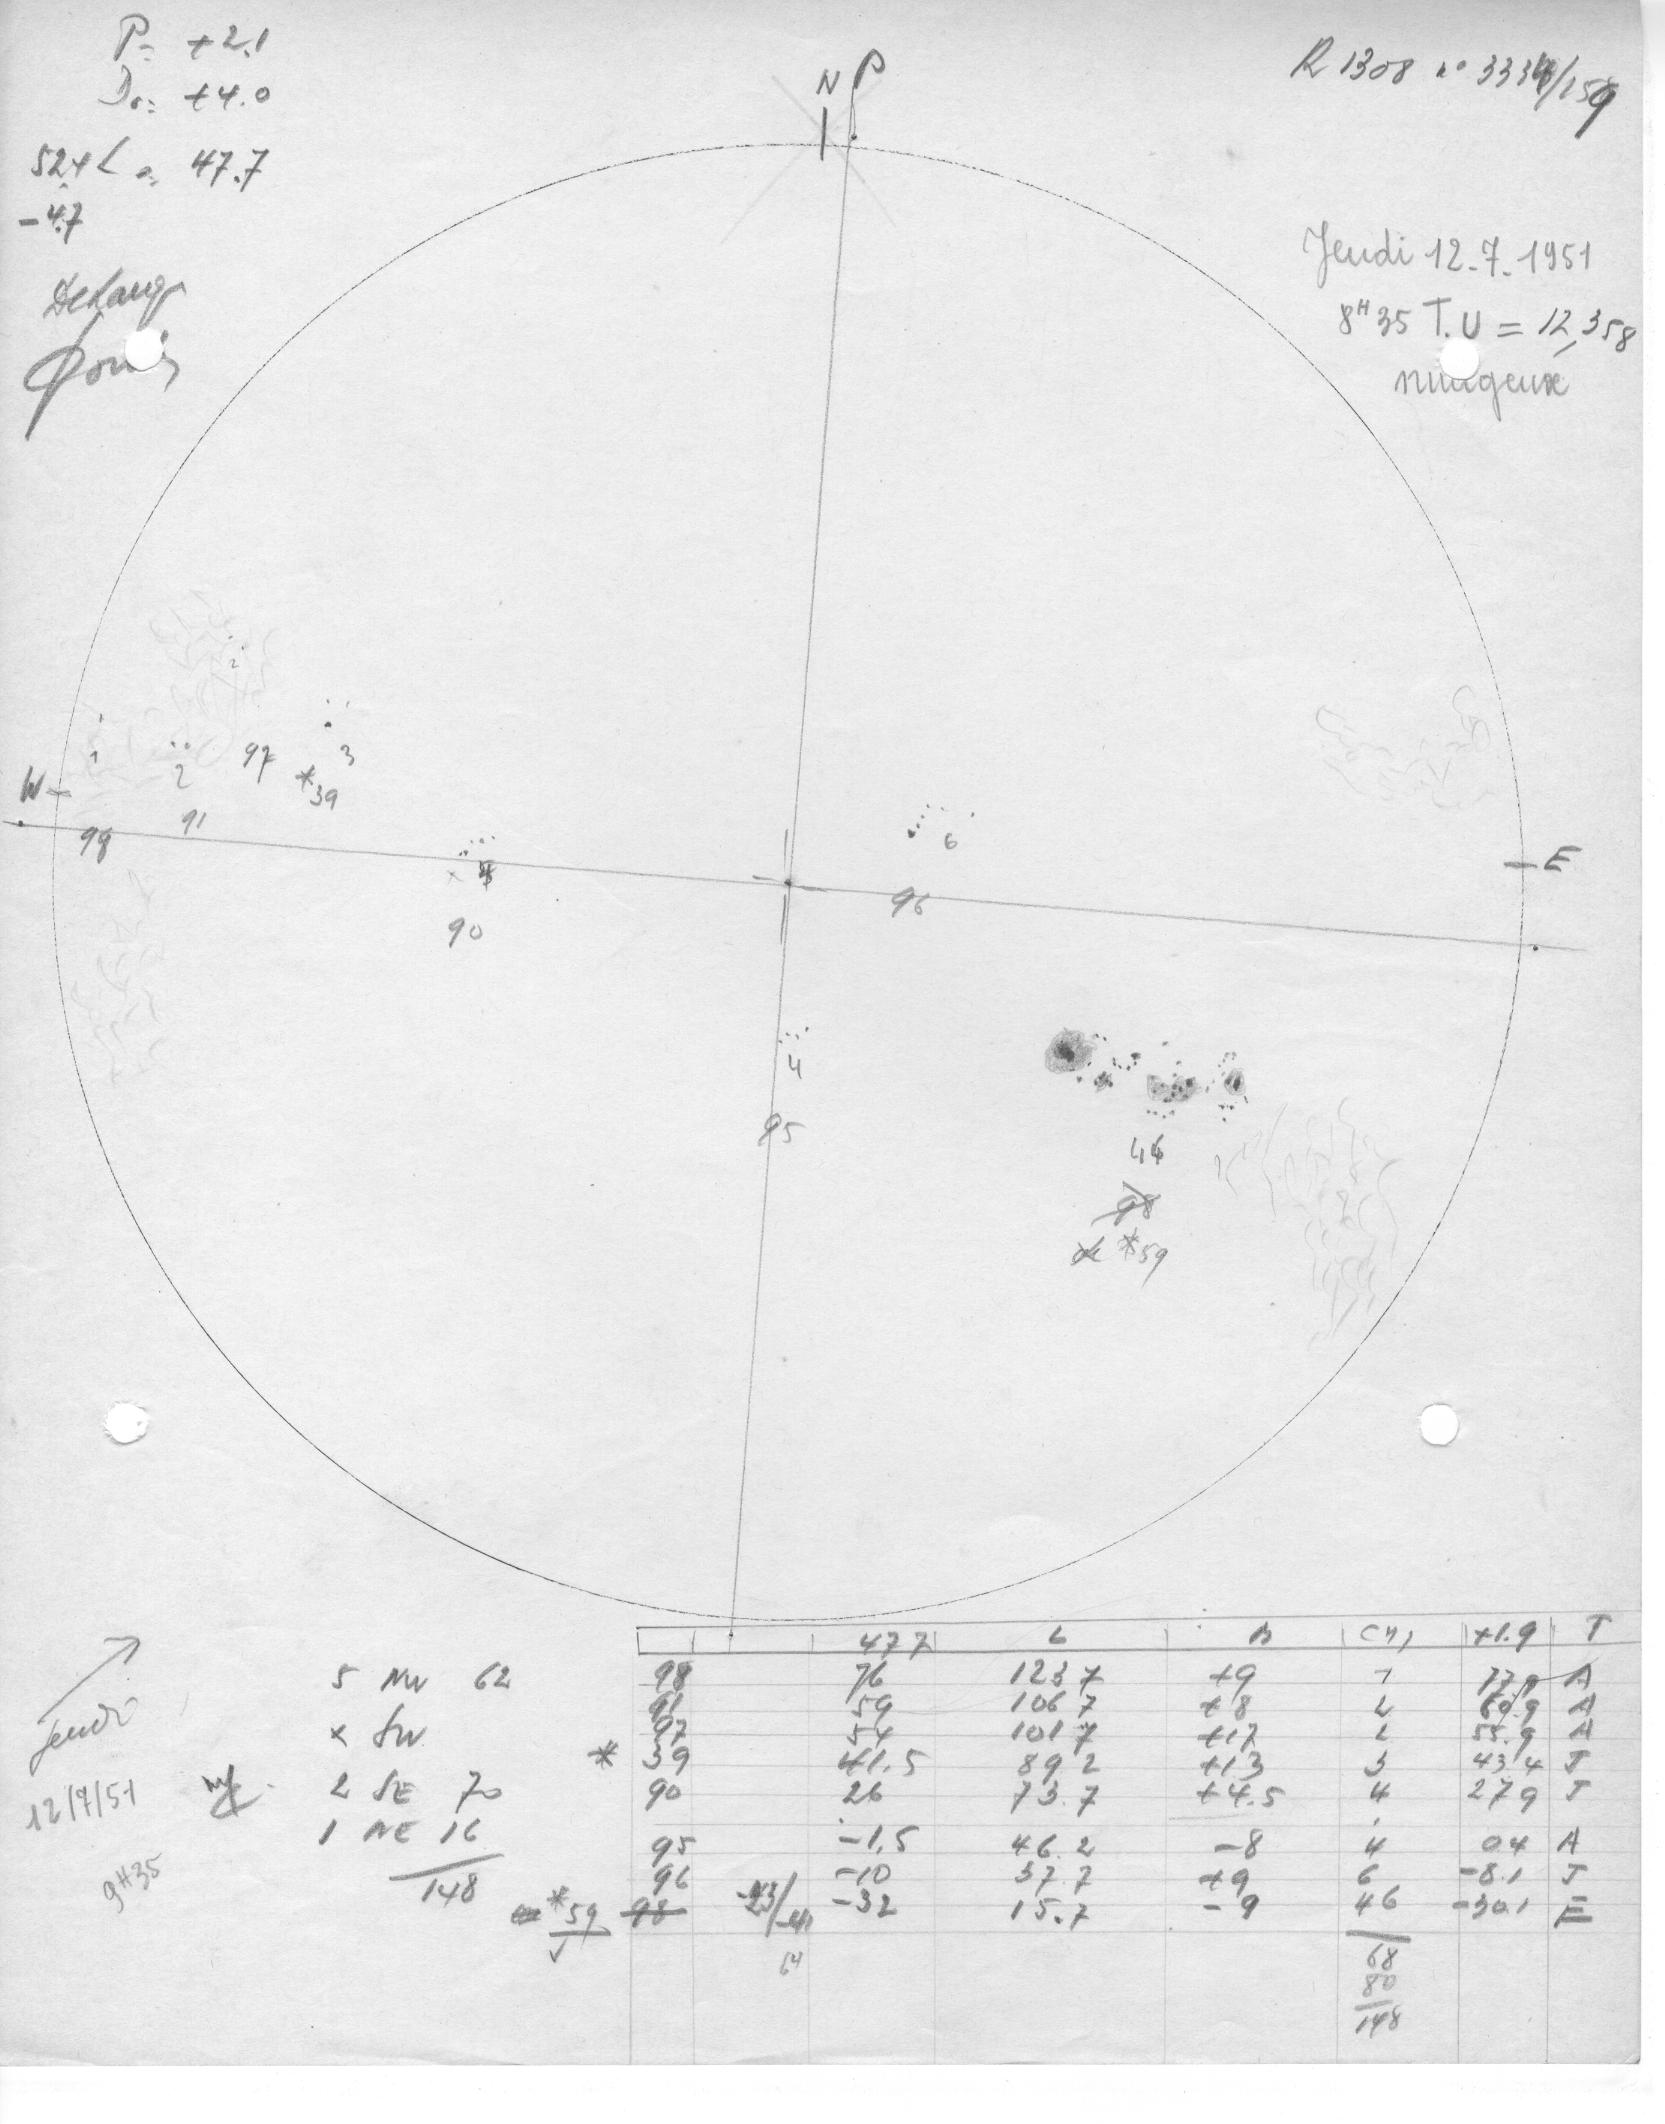 P= +2.1
Do= +4.0
52.4 L o= 47.7
-4.7
N P
R 1308 n° 3334/159
Jeudi 12.7.1951
8H35 T.U = 12,358
nuageux
2
1
2
97
3
*39
W
98
91
4
90
6
96
E
4
95
46
98
*59
47.7 L B (n) +1.9 T
98 76 123.7 +9 1 77.9 A
91 59 106.7 +8 2 60.9 A
97 54 101.7 +17 2 55.9 A
* 39 41.5 89.2 +13 3 43.4 J
90 26 73.7 +4.5 4 27.9 J
95 -1.5 46.2 -8 4 0.4 A
96 -10 37.7 +9 6 -8.1 J
*59 98 -23/-41 -32 15.7 -9 46 -30.1 E
64
68
80
148
5 NW 62
x SW
2 SE 70
1 NE 16
148
Jeudi
12/7/51
9H35